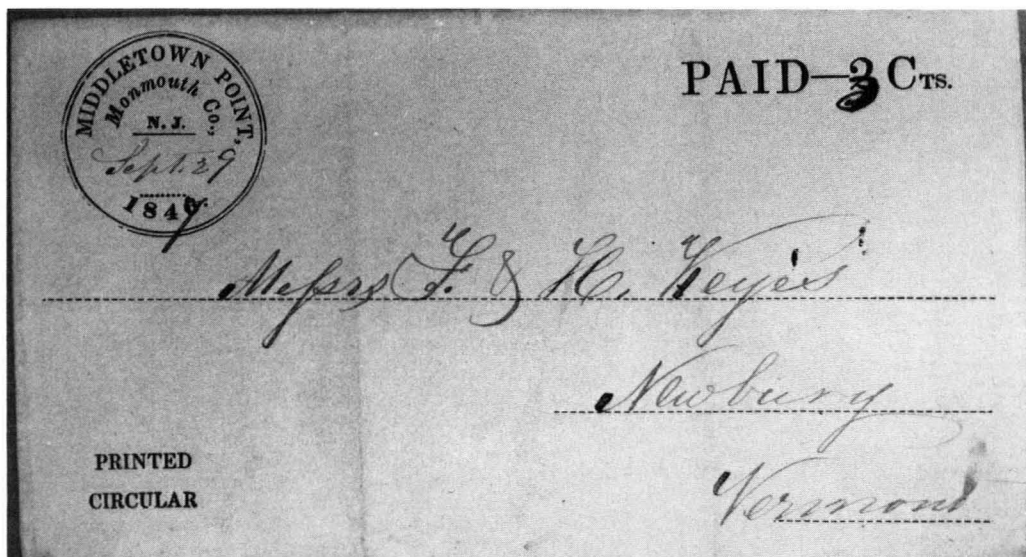 MIDDLETOWN POINT,
Monmouth Co.,
N. J.
Sept. 29
184
PAID—3 CTS.
Messrs F. & H. Keyes
Newbury
Vermont
PRINTED
CIRCULAR